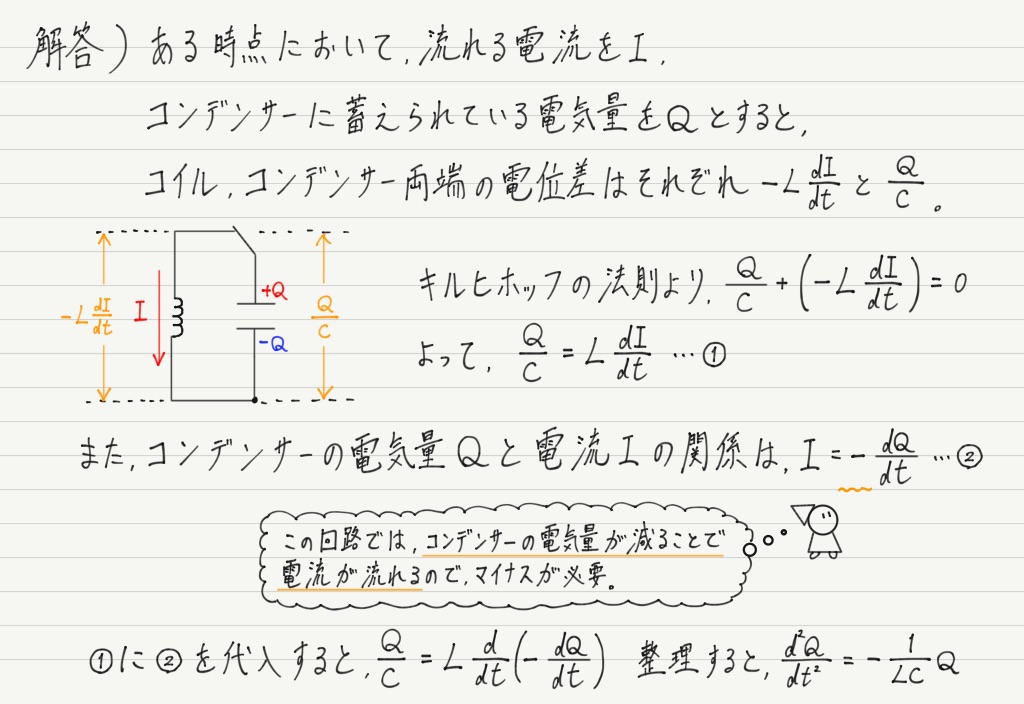 解答) ある時点において,流れる電流をI,
コンデンサーに蓄えられている電気量をQとすると,
コイル,コンデンサー両端の電位差はそれぞれ -L dI/dt と Q/C 。
-L dI/dt I +Q -Q Q/C
キルヒホッフの法則より, Q/C + (-L dI/dt) = 0
よって, Q/C = L dI/dt … ①
また,コンデンサーの電気量Qと電流Iの関係は, I = - dQ/dt … ②
この回路では,コンデンサーの電気量が減ることで
電流が流れるので,マイナスが必要。
①に②を代入すると, Q/C = L d/dt (- dQ/dt) 整理すると, d²Q/dt² = - 1/LC Q